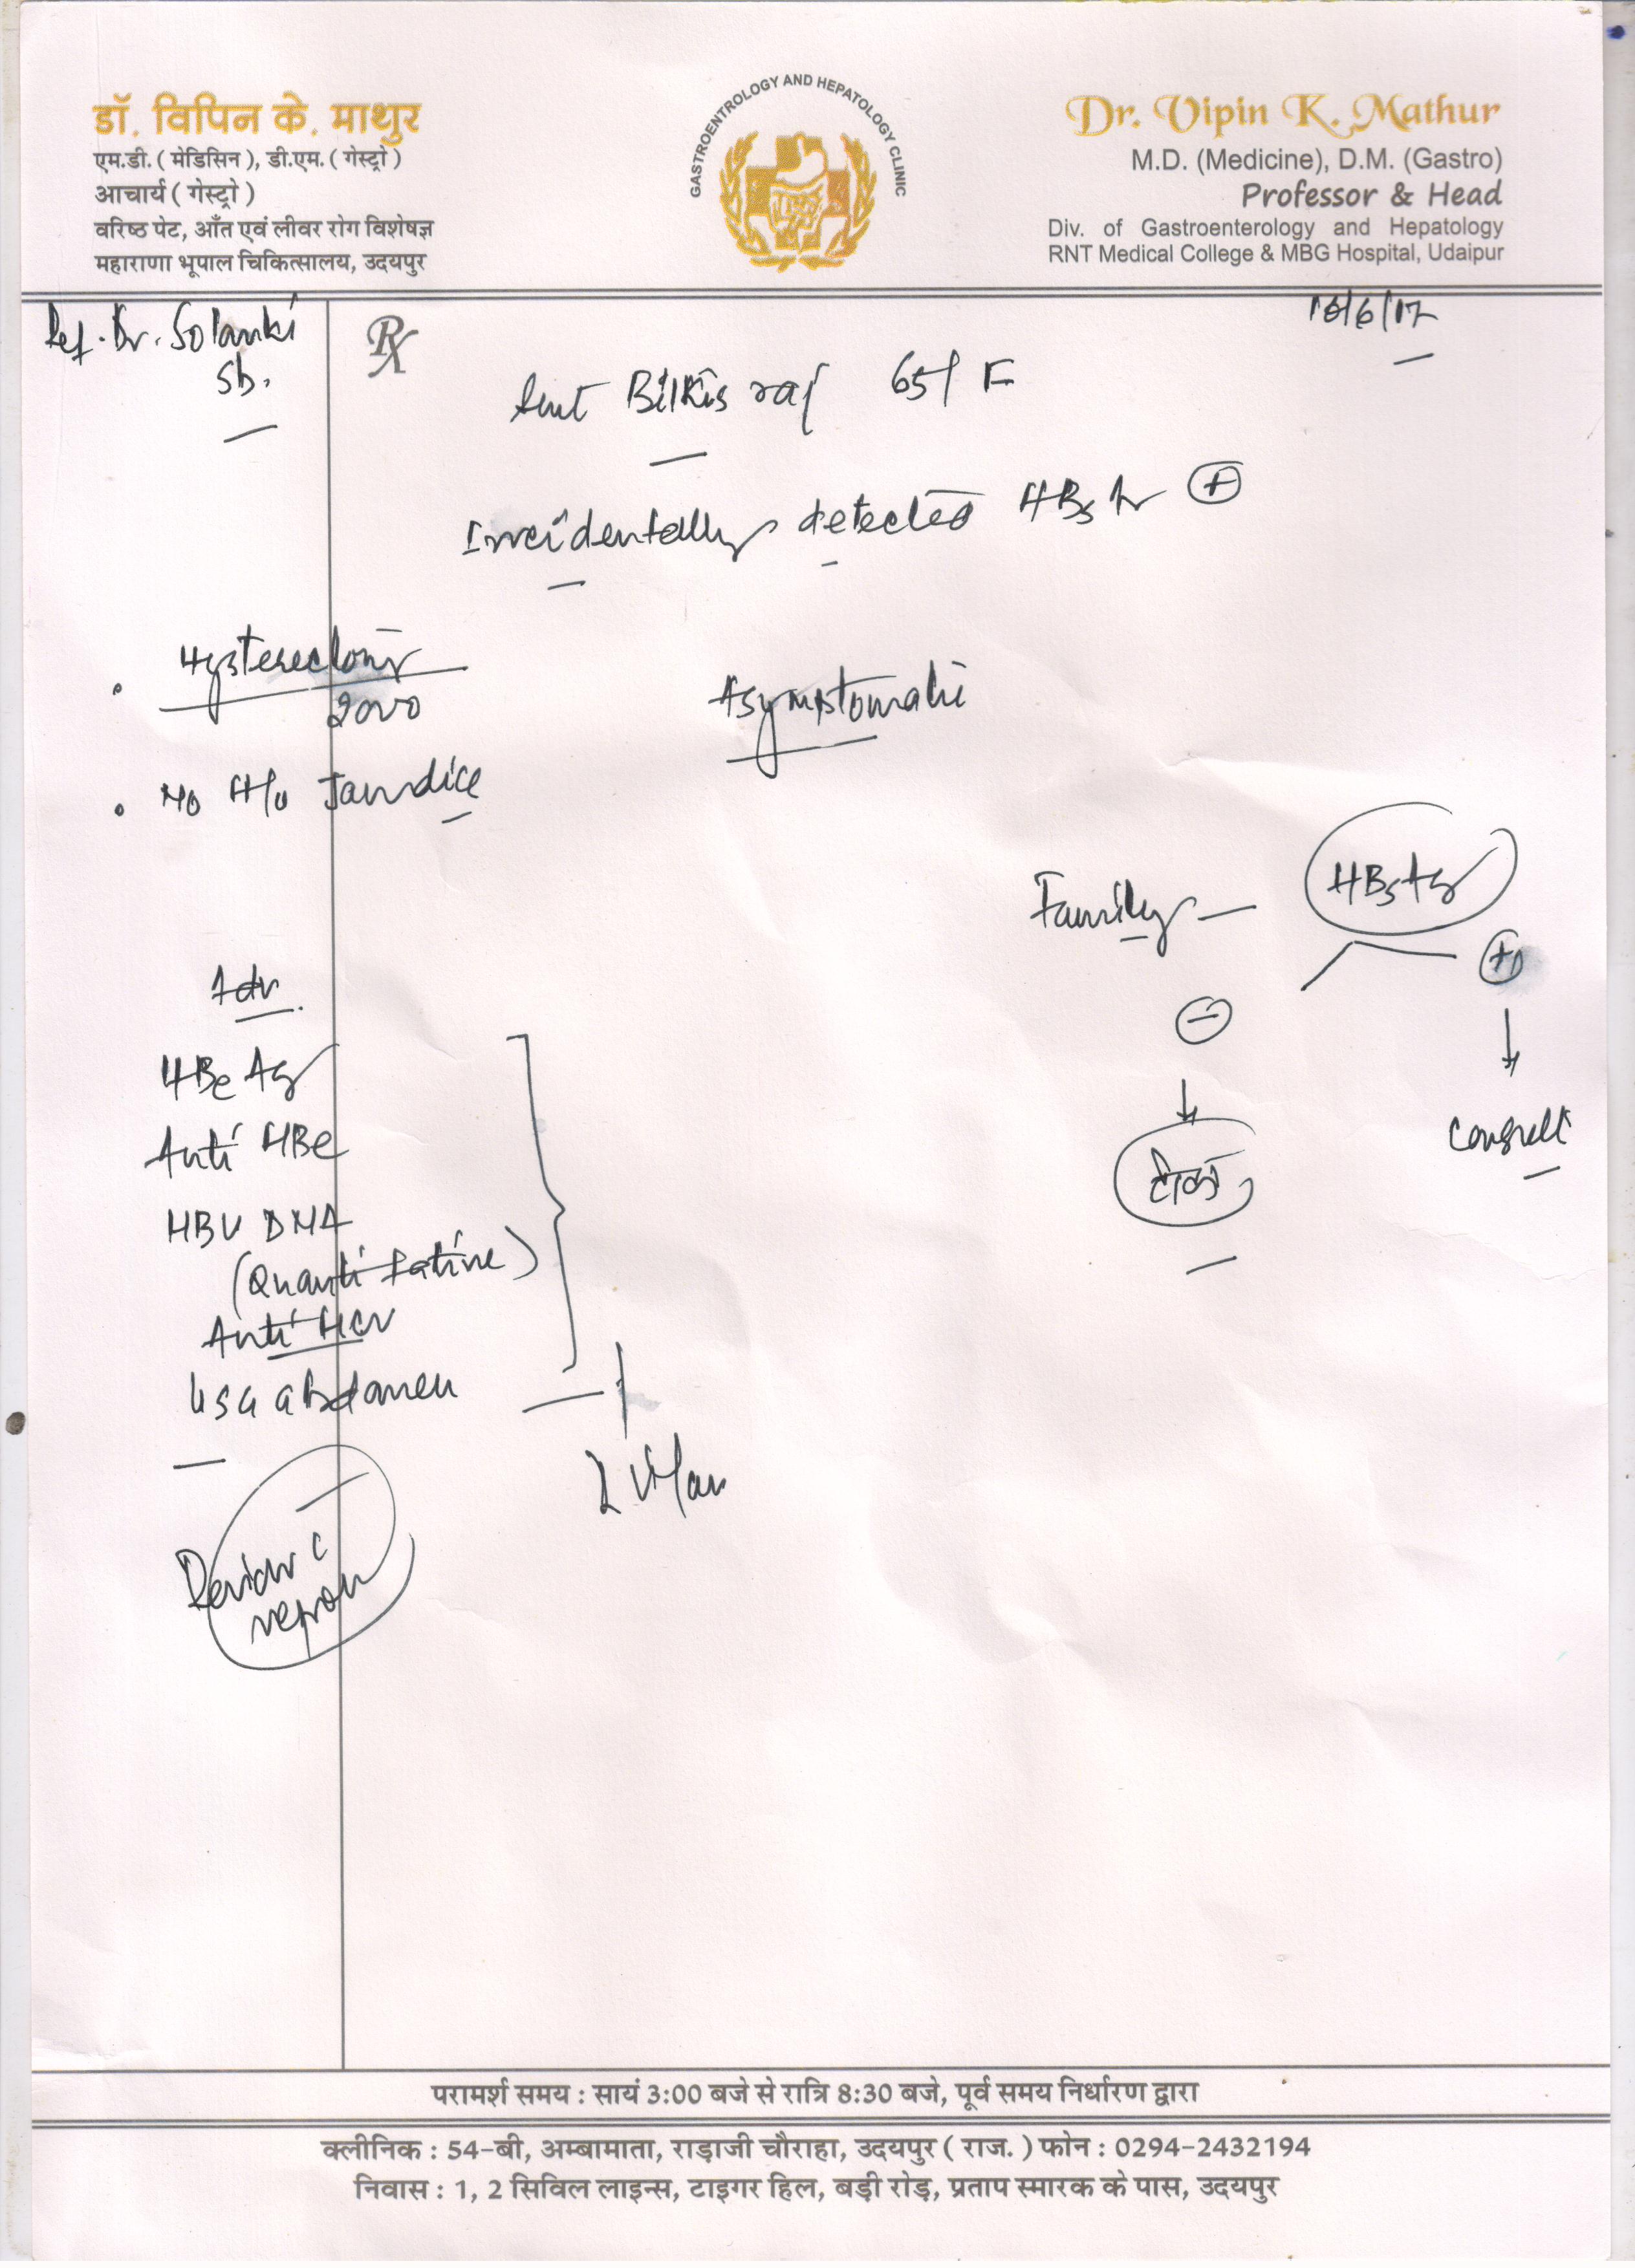 डॉ. विपिन के. माथुर
एम.डी. ( मेडिसिन ), डी.एम. ( गेस्ट्रो )
आचार्य ( गेस्ट्रो )
वरिष्ठ पेट, आँत एवं लीवर रोग विशेषज्ञ
महाराणा भूपाल चिकित्सालय, उदयपुर
GASTROENTROLOGY AND HEPATOLOGY CLINIC
Dr. Vipin K. Mathur
M.D. (Medicine), D.M. (Gastro)
Professor & Head
Div. of Gastroenterology and Hepatology
RNT Medical College & MBG Hospital, Udaipur
Ref. Dr. Solanki
Sb.
Rx
/6/17
Smt Bilkis raj 65/ F
Incidentally detected HBsAg +
Hysterectomy
2000
Asymptomatic
No H/o Jaundice
Family — HBsAg
- +
टीका
Consult
Adv
HBeAg
Anti HBe
HBV DNA
(Quantitative)
Anti HCV
USG abdomen
Review c̄
report
परामर्श समय : सायं 3:00 बजे से रात्रि 8:30 बजे, पूर्व समय निर्धारण द्वारा
क्लीनिक : 54-बी, अम्बामाता, राड़ाजी चौराहा, उदयपुर ( राज. ) फोन : 0294-2432194
निवास : 1, 2 सिविल लाइन्स, टाइगर हिल, बड़ी रोड़, प्रताप स्मारक के पास, उदयपुर